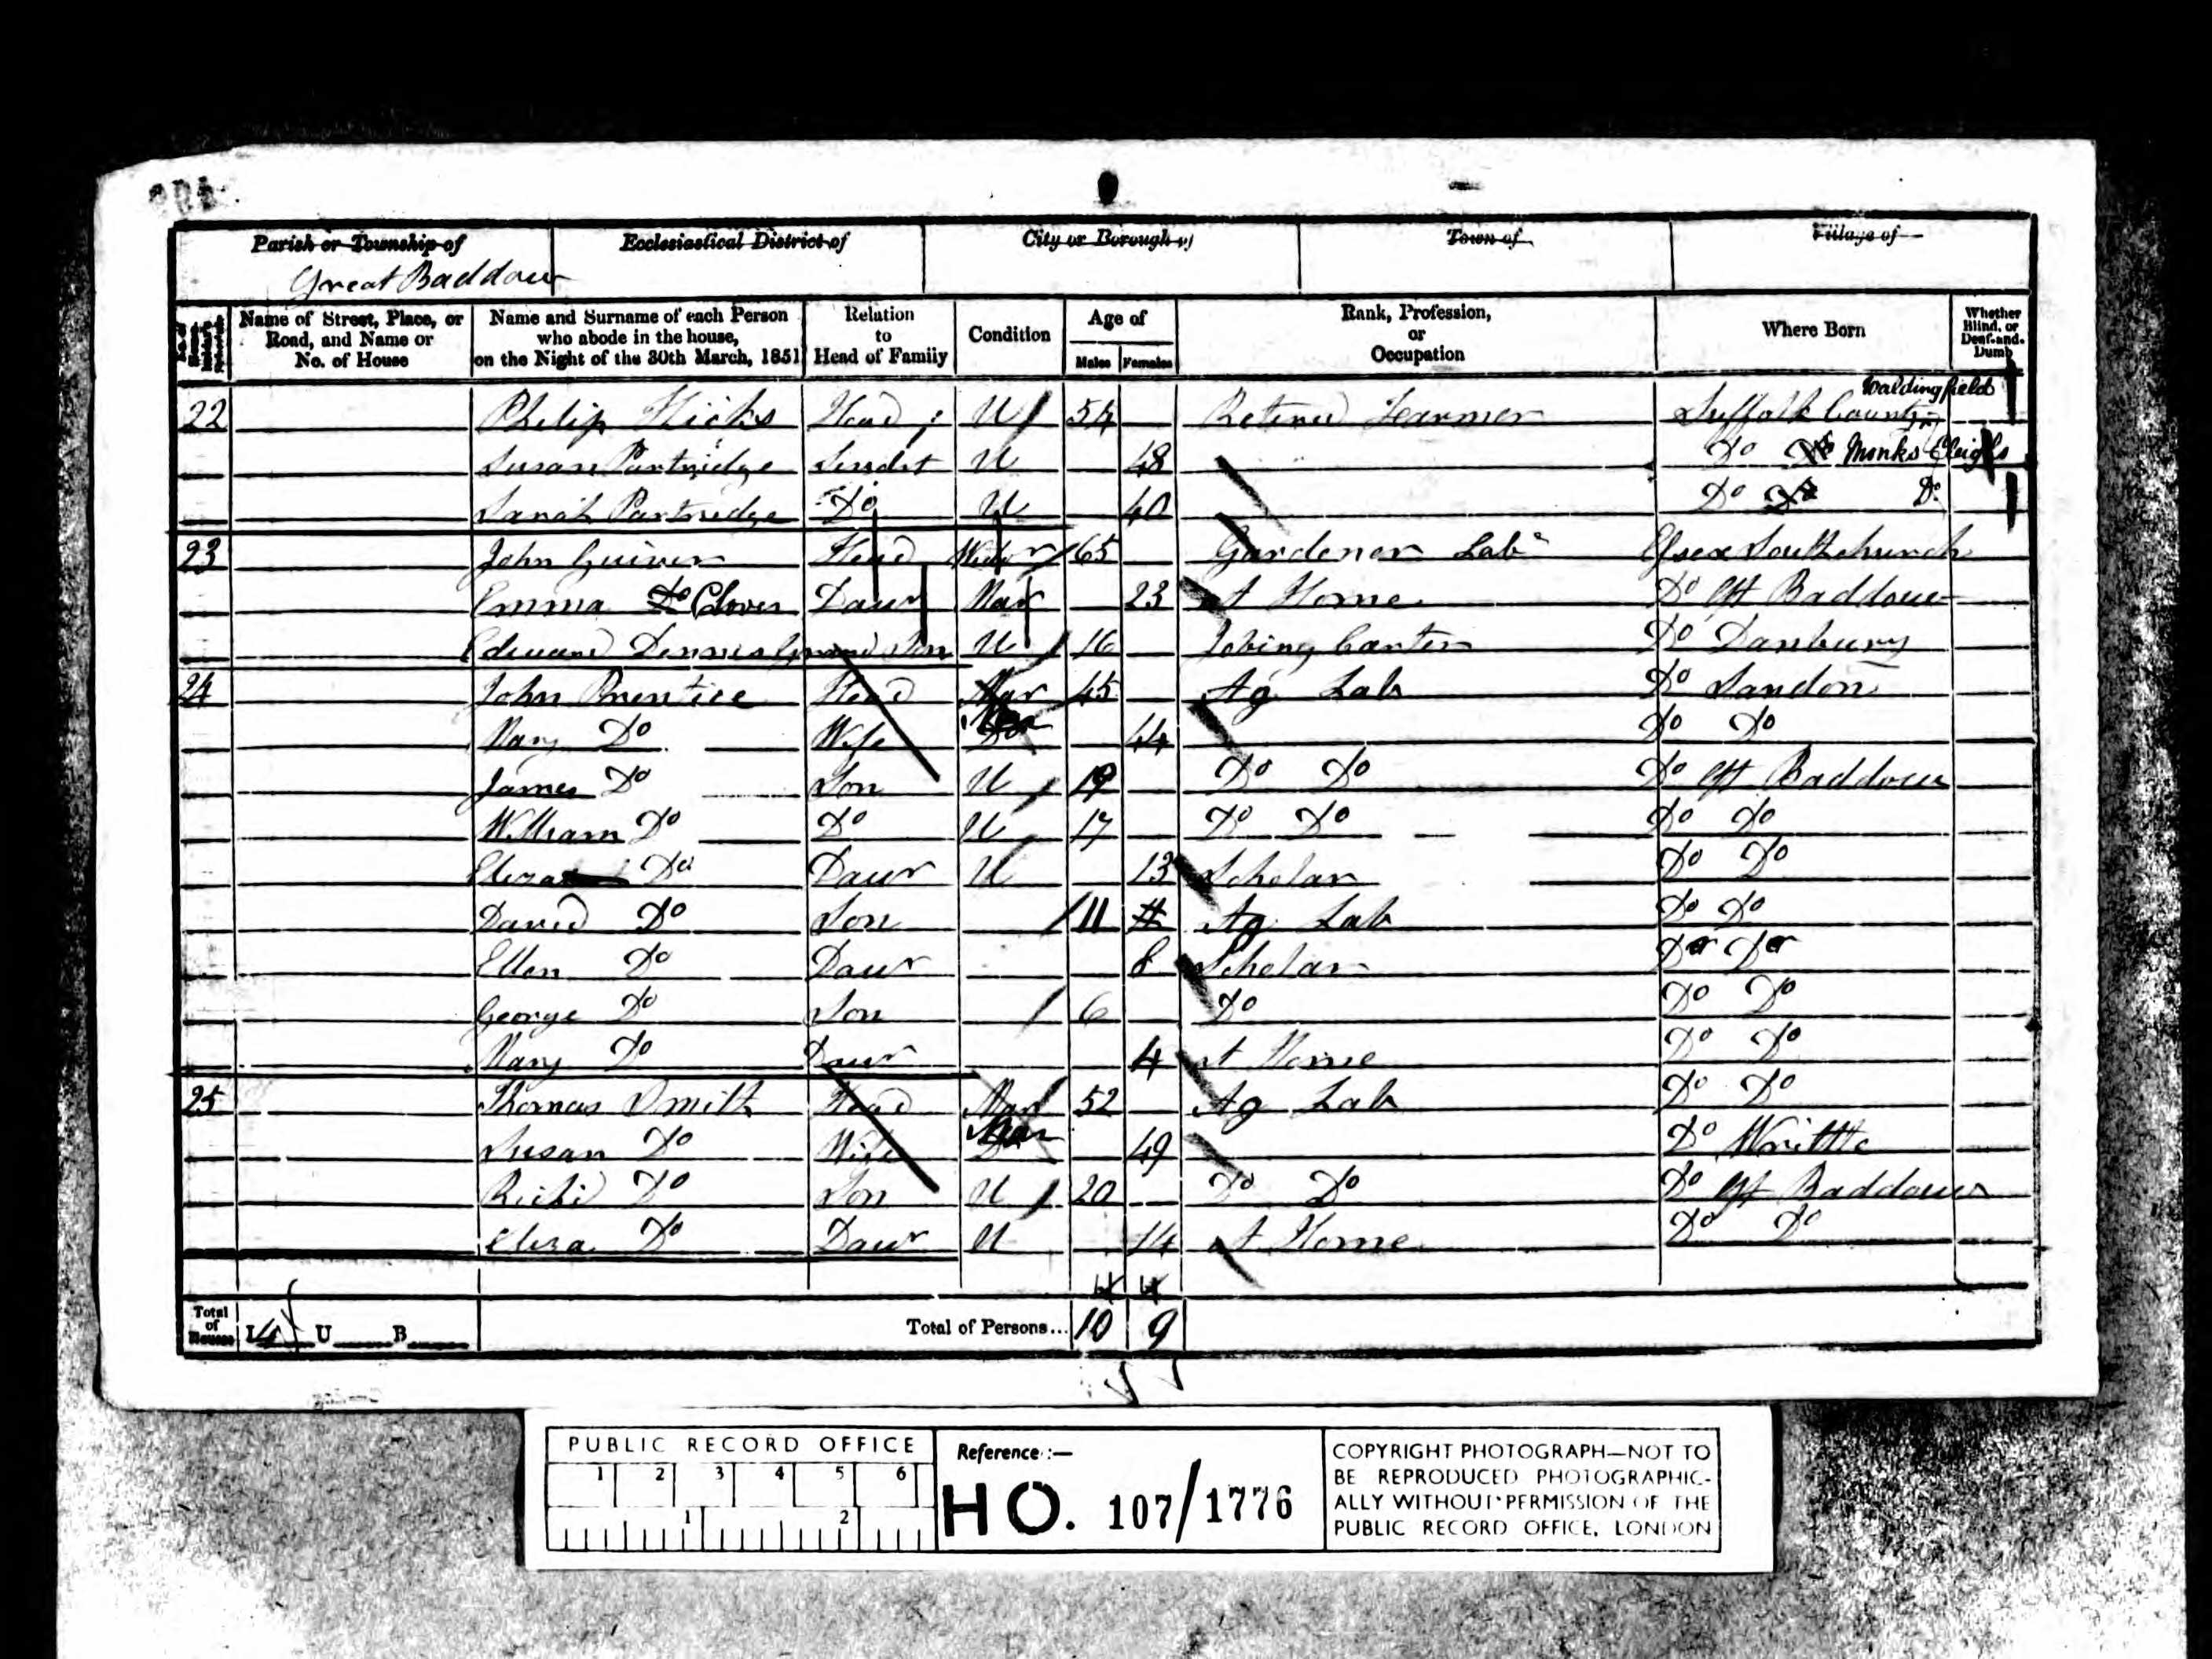 Parish or Township of
Ecclesiastical District of
City or Borough of
Town of
Village of
Great Baddow
Name of Street, Place, or Road, and Name or No. of House
Name and Surname of each Person who abode in the house, on the Night of the 30th March, 1851
Relation to Head of Family
Condition
Age of
Males
Females
Rank, Profession, or Occupation
Where Born
Whether Blind, or Deaf-and-Dumb
Waldingfield
22 Philip Hicks Head U 54 Retired Farmer Suffolk County
Susan Partridge Servt U 48 Do Do Monks Eleigh
Sarah Partridge Do U 40 Do Do Do
23 John Guiver Head Widor 65 Gardener Lab Essex Southchurch
Emma Do Clover Daur Mar 23 at Home Do Gt Baddow
Edward Dennis Grand Son U 16 Jobing Carter Do Danbury
24 John Prentice Head Mar 45 Ag Lab Do Sandon
Mary Do Wife Mar 44 Do Do
James Do Son U 19 Do Do Do Gt Baddow
William Do Do U 17 Do Do Do Do
Eliza Do Daur U 13 Scholar Do Do
David Do Son 11 Ag Lab Do Do
Ellen Do Daur 8 Scholar Do Do
George Do Son 6 Do Do Do
Mary Do Daur 4 at Home Do Do
25 Thomas Smith Head Mar 52 Ag Lab Do Do
Susan Do Wife Mar 49 Do Writtle
Richd Do Son U 20 Do Do Do Gt Baddow
Eliza Do Daur U 14 at Home Do Do
Total of Houses I 4 U B Total of Persons... 10 9
PUBLIC RECORD OFFICE
1 2 3 4 5 6
1 2
Reference:—
HO. 107/1776
COPYRIGHT PHOTOGRAPH—NOT TO
BE REPRODUCED PHOTOGRAPHIC-
ALLY WITHOUT PERMISSION OF THE
PUBLIC RECORD OFFICE, LONDON